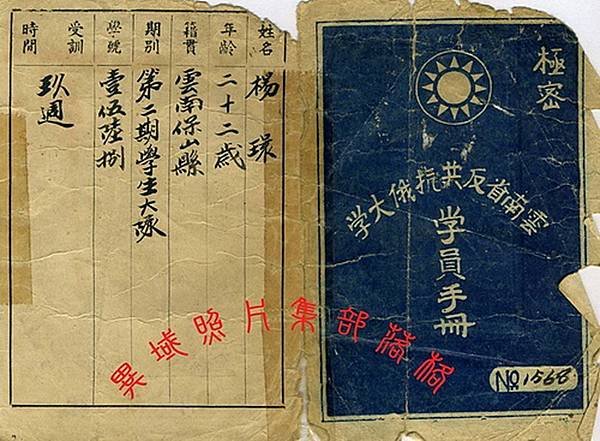 極密
雲南省反共抗俄大學
学員手冊
№1568
姓名 楊球
年齡 二十二歲
籍貫 雲南保山縣
期別 第二期學生大隊
學號 壹伍陸捌
受訓時間 玖週
異域照片集部落格